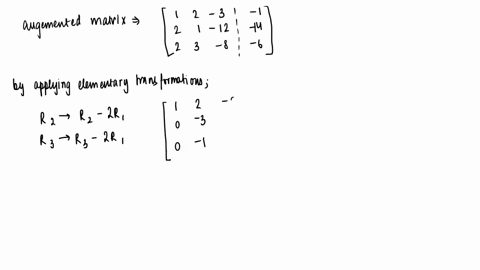 augmented matrix ⇒ [ 1 2 -3 | -1
2 1 -12 | -14
2 3 -8 | -6 ]
by applying elementary transformations;
R2 → R2 - 2R1 [ 1 2 -
R3 → R3 - 2R1 0 -3
0 -1